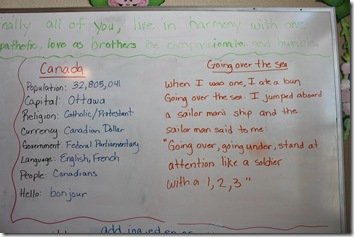 nally all of you, live in harmony with one
pathetic, love as brothers be compassionate and
Canada
Population: 32,805,041
Capital: Ottawa
Religion: Catholic/Protestant
Currency: Canadian Dollar
Government: Federal Parliamentary
Language: English, French
People: Canadians
Hello: bonjour
Going over the sea
When I was one, I ate a bun
Going over the sea. I jumped aboard
a sailor man's ship and the
sailor man said to me:
"Going over, going under, stand at
attention like a soldier
with a 1, 2, 3"